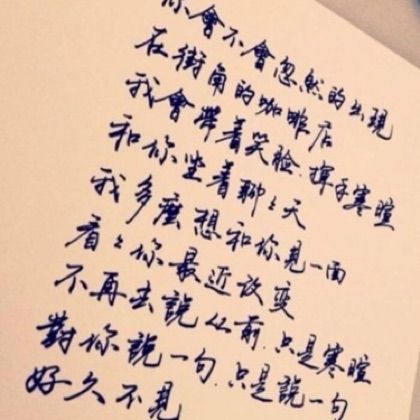 你會不會忽然的出現
在街角的咖啡店
我會帶着笑臉.揮手寒暄
和你坐着聊々天
我多麼想和你見一面
看々你最近改变
不再去說从前.只是寒暄
對你說一句.只是說一句
好久不見